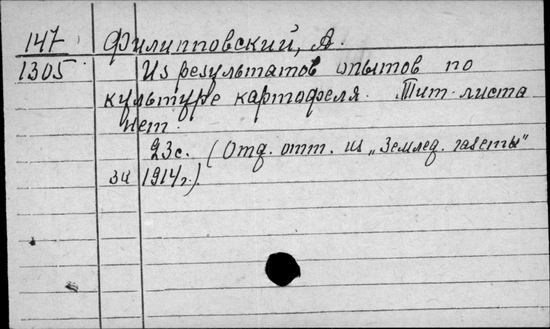 147 Филипповский, А.
1305 Из результатов опытов по
культуре картофеля. Тит. листа
нет.
23с. (Отд. отт. из „Землед. газеты"
за 1914г.).